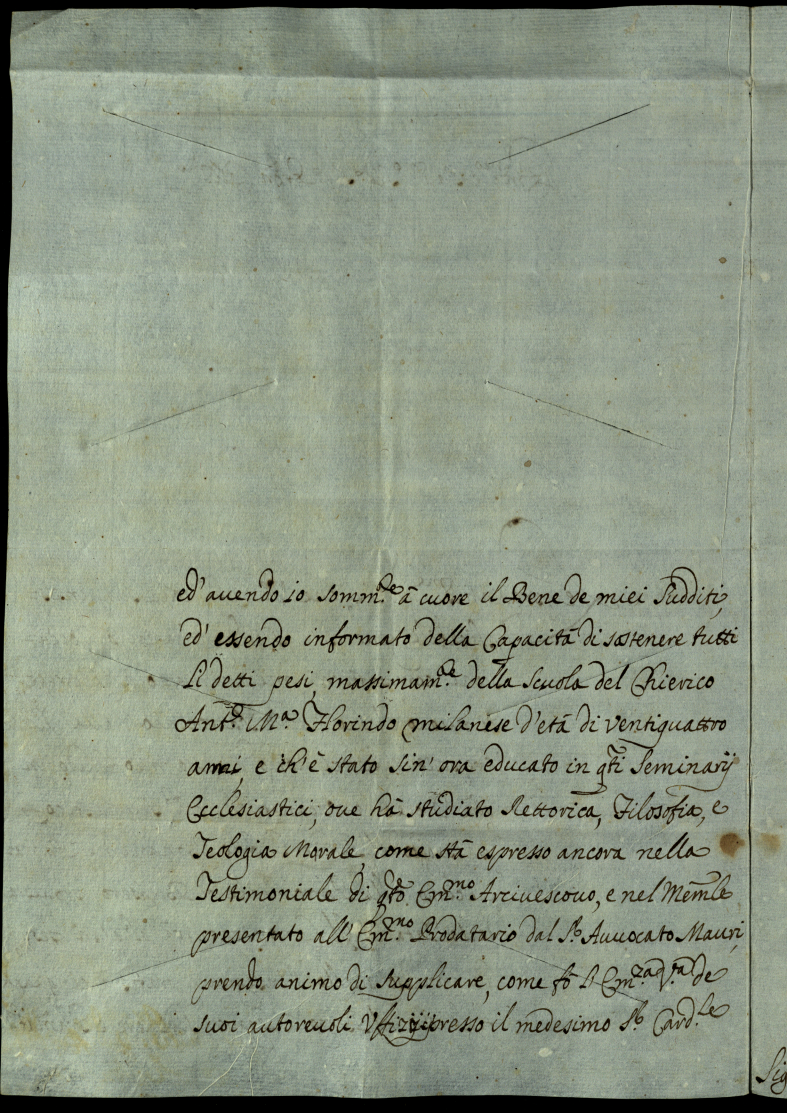 ed' avendo io somm.te à cuore il Bene de miei Sudditi,
ed' essendo informato della Capacità di sostenere tutti
li detti pesi, massimam.te della Scuola del Chierico
Ant.o M.a Florindo milanese d'età di ventiquattro
anni, e ch'è stato sin' ora educato in q.ti Seminarij
Ecclesiastici, ove hà studiato Rettorica, Filosofia, e
Teologia Morale, come stà espresso ancora nella
Testimoniale di q.to Em.mo Arcivescovo, e nel Memle
presentato all' Em.mo Prodatario dal S.r Avvocato Mauri,
prendo animo di supplicare, come fò l' Em.za V.ra de
suoi autorevoli Uffizij presso il medesimo S.r Card.le
Sig